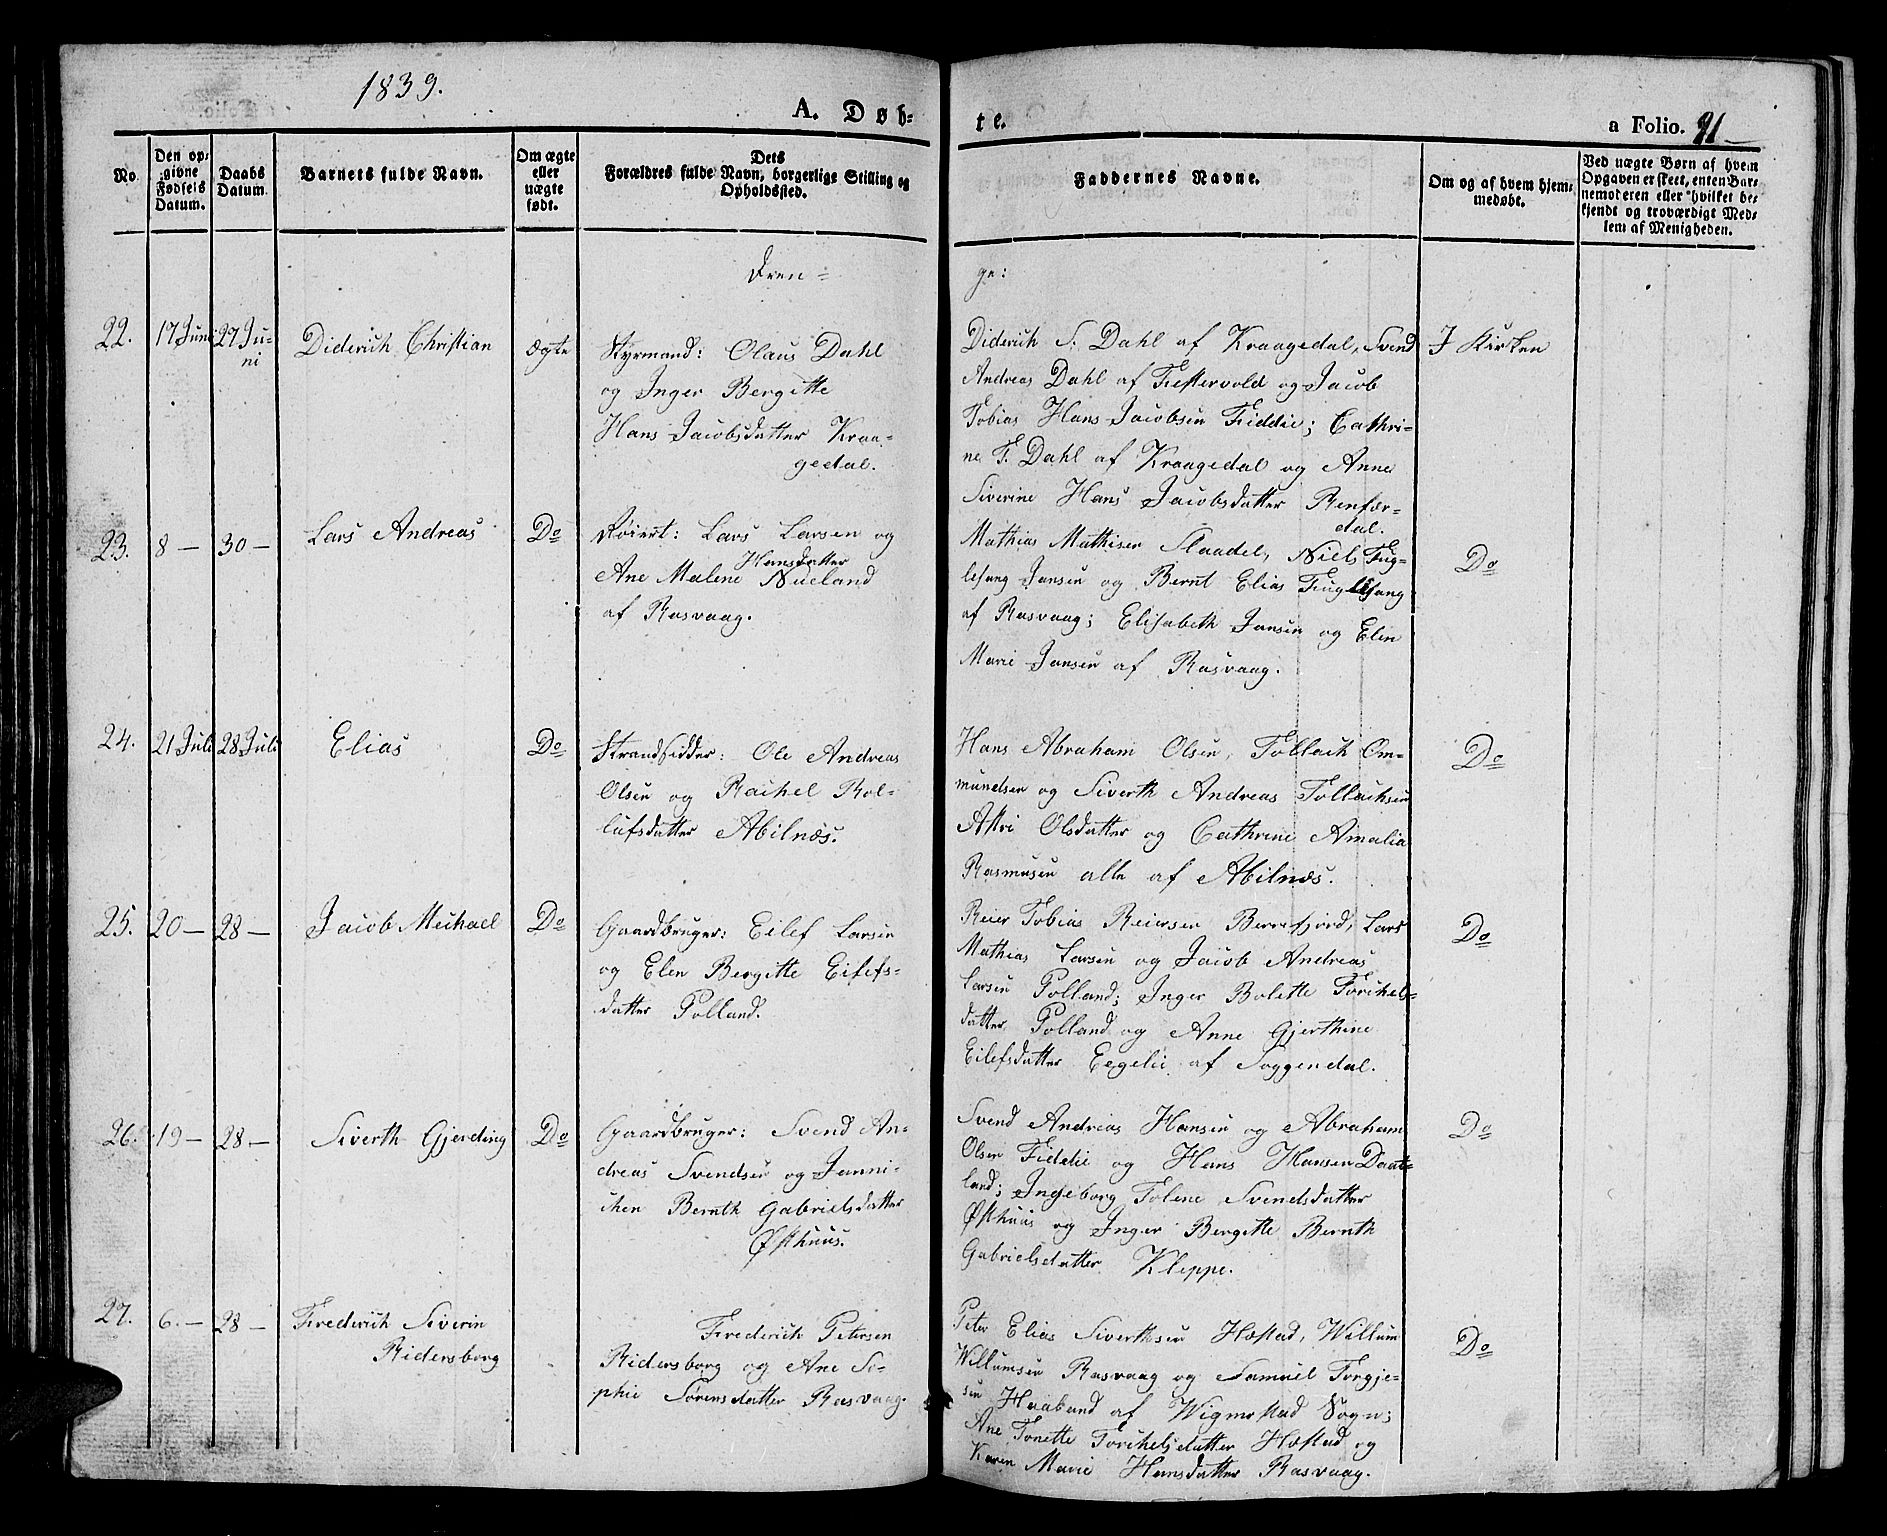 1839.
A. Døb-
te.
a Folio. 91
No.
Den op-
givne
Fødsels
Datum.
Daabs
Datum.
Barnets fulde Navn.
Om ægte
eller
uægte
født.
Dets
Forældres fulde Navn, borgerlige Stilling og
Opholdssted.
Faddernes Navne.
Om og af hvem hjem-
medøbt.
Ved uægte Børn af hvem
Opgaven er skeet, enten Bar-
nemoderen eller hvilket be-
kjendt og troværdigt Med-
lem af Menigheden.
Dren-
ge:
22.
17 Juni
27 Ju-
ni
Diderich Christian
Ægte
Styrmand: Olaus Dahl
og Inger Bergitte
Hans Jacobsdatter Kraa-
gedal.
Diderich S. Dahl af Kraagedal, Svend
Andreas Dahl af Festervold og Jacob
Tobias Hans Jacobsen Fiddie; Cathri-
ne F. Dahl af Kraagedal og Anne
Siverine Hans Jacobsdatter Renfær-
dal.
I Kirken
23.
8 —
30 —
Lars Andreas
Do
Røiert: Lars Larsen og
Hansdatter
Ane Malene Nueland
af Rasvaag.
Mathias Mathisen Slaadel, Niels Fug-
lesang Jansen og Bernt Elias Fuglesang
af Rasvaag; Elisabeth Jansen og Elen
Marie Jansen af Rasvaag.
Do
24.
21 Juli
28 Juli
Elias
Do
Strandsidder: Ole Andreas
Olsen og Rachel Rol-
lufsdatter Abilnæs.
Hans Abraham Olsen, Tollach Om-
mundsen og Siverth Andreas Tollachsen
Astri Olsdatter og Cathrine Amalia
Rasmusen alle af Abilnæs.
Do
25.
20 —
28 —
Jacob Michael
Do
Gaardbruger: Eilef Larsen
og Elen Bergitte Eilefs-
datter Polland.
Reier Tobias Reiersen Berrefjord, Lars
Mathias Larsen og Jacob Andreas
Larsen Polland; Inger Bolette Torkels-
datter Polland og Anne Gjerthine
Eilefsdatter Eegelie af Soggendal.
Do
26.
19 —
28 —
Siverth Gjerding
Do
Gaardbruger: Svend An-
dreas Svendsen og Janni-
chen Bernth Gabrielsdatter
Østhuus.
Svend Andreas Hansen og Abraham
Olsen Fiddie og Hans Hansen Daat-
land; Ingeborg Tolene Svendsdatter
Østhuus og Inger Bergitte Bernth
Gabrielsdatter Kleppe.
Do
27.
6. —
28 —
Frederich Siverin
Ridersborg
Frederich Petersen
Ridersborg og Ane So-
phie Sørensdatter Rasvaag.
Peter Elias Siverthsen Hæstad, Willum
Willumsen Rasvaag og Samuel Torgje-
sen Haaland af Wigmostad Sogn;
Ane Tonette Torkelsdatter Hæstad og
Karen Marie Hansdatter Rasvaag.
Do